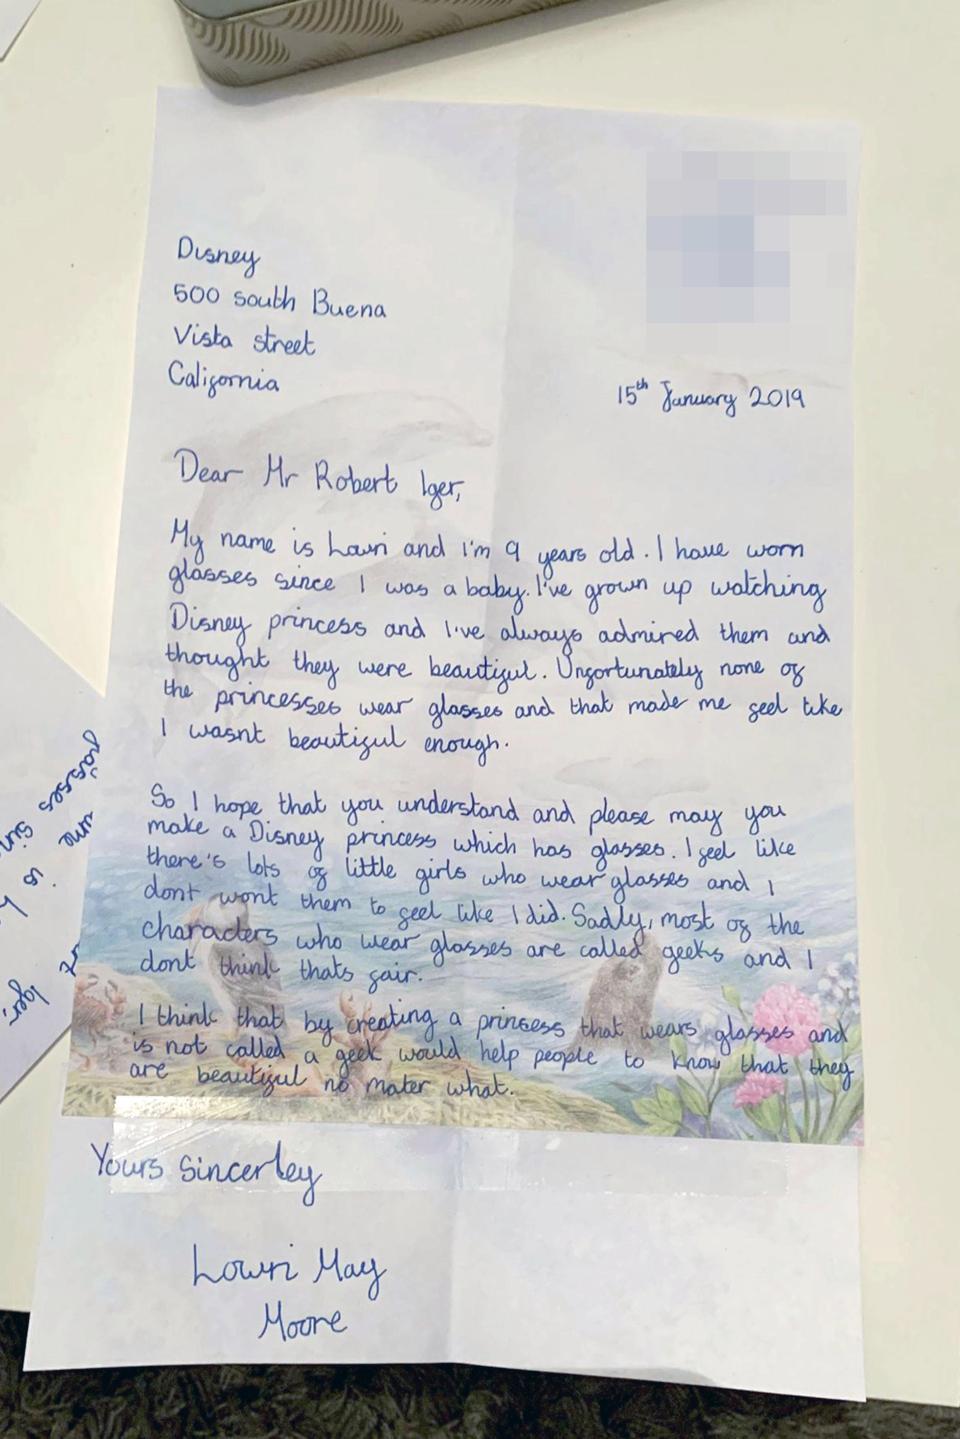 Disney
500 south Buena
Vista street
California
15th January 2019
Dear Mr Robert Iger,
My name is Lowri and I'm 9 years old. I have worn
glasses since I was a baby. I've grown up watching
Disney princess and I've always admired them and
thought they were beautiful. Unfortunately none of
the princesses wear glasses and that made me feel like
I wasnt beautiful enough.
So I hope that you understand and please may you
make a Disney princess which has glasses. I feel like
there's lots of little girls who wear glasses and I
dont wont them to feel like I did. Sadly, most of the
characters who wear glasses are called geeks and I
dont think thats fair.
I think that by creating a princess that wears glasses and
is not called a geek would help people to know that they
are beautiful no mater what.
Yours Sincerley
Lowri May
Moore
glasses sin
me is
Iger,